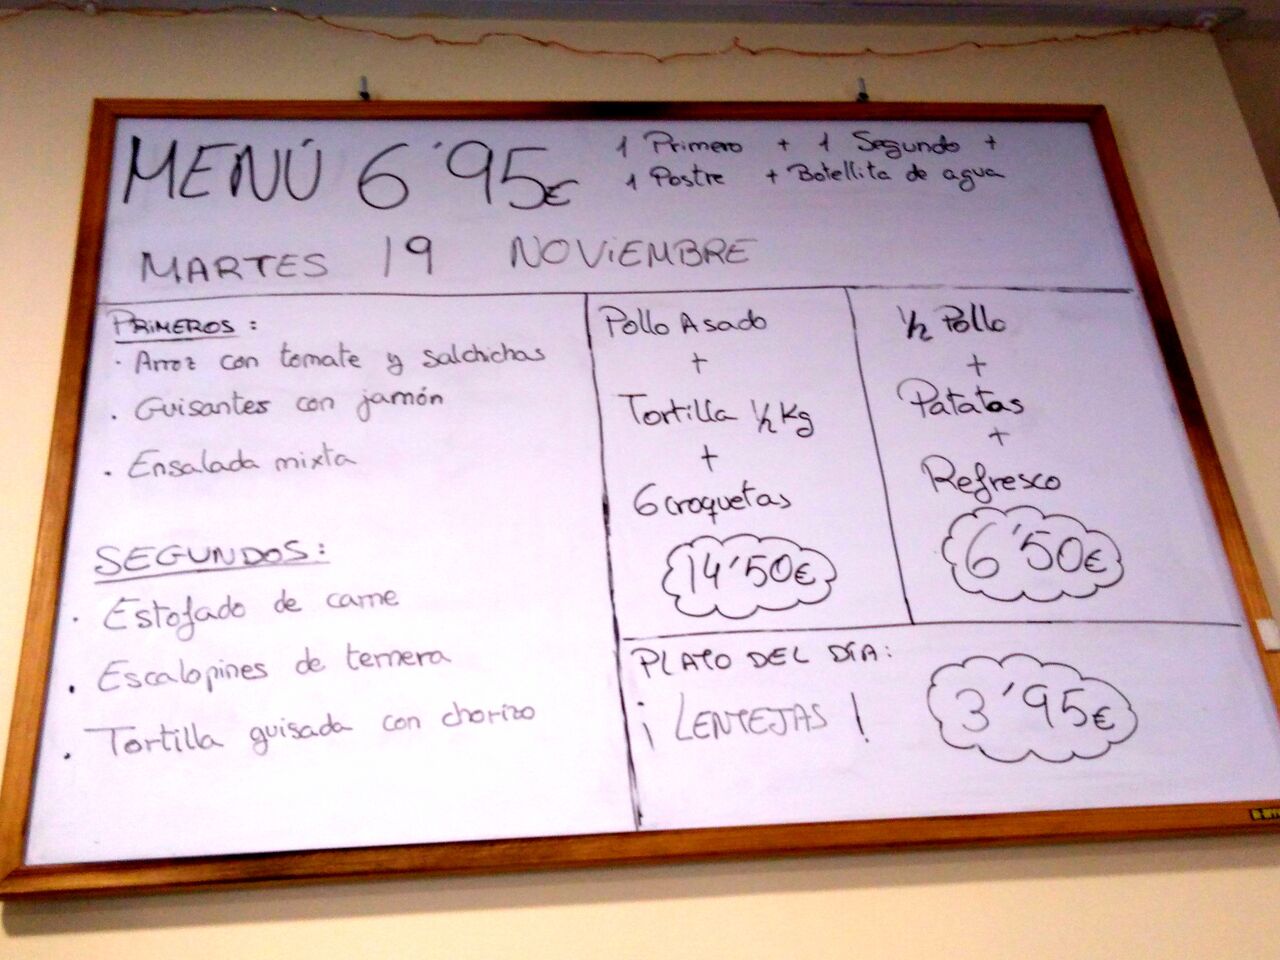 MENÚ 6'95€
1 Primero + 1 Segundo +
1 Postre + Botellita de agua
MARTES 19 NOVIEMBRE
PRIMEROS:
· Arroz con tomate y salchichas
· Guisantes con jamón
· Ensalada mixta
SEGUNDOS:
· Estofado de carne
· Escalopines de ternera
· Tortilla guisada con chorizo
Pollo Asado
+
Tortilla 1/2 Kg
+
6 croquetas
14'50€
1/2 Pollo
+
Patatas
+
Refresco
6'50€
PLATO DEL DÍA:
¡LENTEJAS!
3'95€